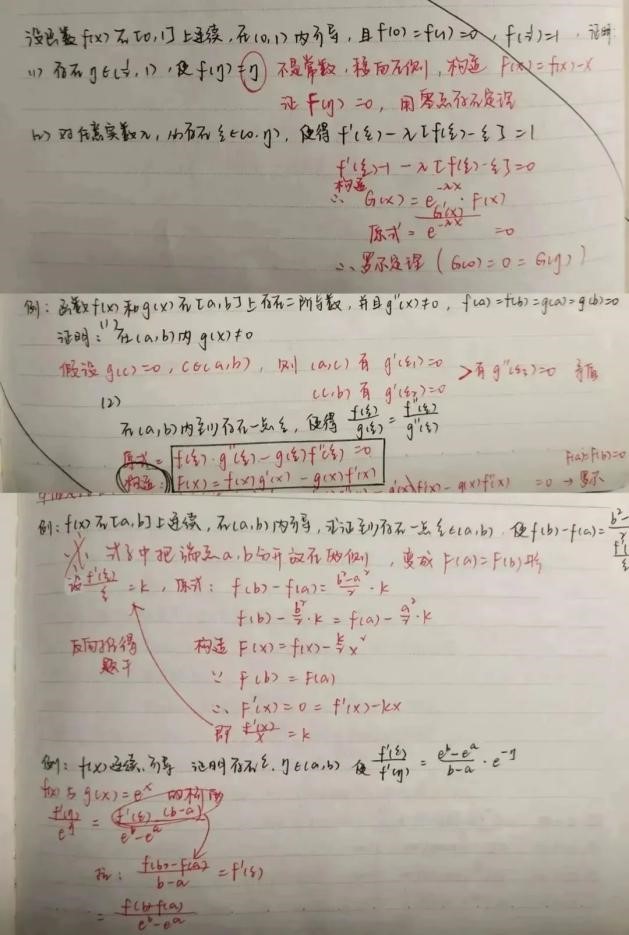 设函数f(x)在[0,1]上连续,在(0,1)内可导,且f(0)=f(1)=0,f(½)=1,证明:
(1) 存在η∈(½,1),使f(η)=η 不是常数,移向右侧,构造 F(x)=f(x)-x
证 F(η)=0,用零点存在定理
(2) 对任意实数λ,必存在ξ∈(0,η),使得 f'(ξ)-λ[f(ξ)-ξ]=1
f'(ξ)-1-λ[f(ξ)-ξ]=0
构造
∴ G(x)=e^{-λx}·F(x)
原式= G'(x)/e^{-λx} =0
∴罗尔定理(G(0)=0=G(η))
例:函数f(x)和g(x)在[a,b]上存在二阶导数,并且g''(x)≠0,f(a)=f(b)=g(a)=g(b)=0
证明:(1) 在(a,b)内g(x)≠0
假设g(c)=0,c∈(a,b),则 (a,c)有 g'(ξ₁)=0 >有g''(ξ₃)=0 矛盾
(c,b)有 g'(ξ₂)=0
(2)
在(a,b)内至少存在一点ξ,使得 f(ξ)/g(ξ)=f''(ξ)/g''(ξ)
原式=f(ξ)·g''(ξ)-g(ξ)f''(ξ)=0
F(a)=F(b)=0
构造:F(x)=f(x)g'(x)-g(x)f'(x)
g'(x)f'(x)-g(x)f''(x) =0→罗尔
例:f(x)在[a,b]上连续,在(a,b)内可导,求证至少存在一点ξ∈(a,b),使f(b)-f(a)=
式子中把端点a,b分开放在两侧,变成F(a)=F(b)形
设f'(ξ)/ξ=k,原式:f(b)-f(a)=(b²-a²)/2·k
f(b)-b²/2·k=f(a)-a²/2·k
反向推得
题干
构造 F(x)=f(x)-k/2 x²
∵ F(b)=F(a)
∴ F'(x)=0=f'(x)-kx
即 f'(x)/x=k
例:f(x)连续、可导 证明存在ξ,η∈(a,b) 使 f'(ξ)/f'(η)=(e^b-e^a)/(b-a)·e^{-η}
f(x)与g(x)=e^x
f'(η)/e^η=f'(ξ)·(b-a)/(e^b-e^a)
拉:(f(b)-f(a))/(b-a)=f'(ξ)
=(f(b)-f(a))/(e^b-e^a)